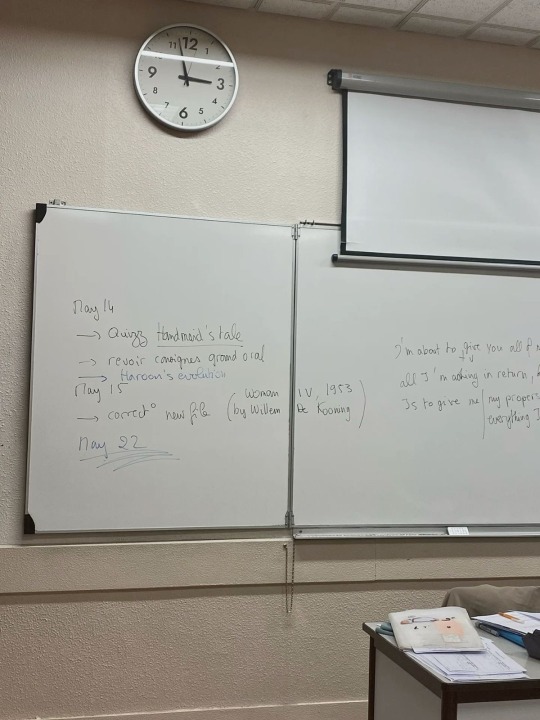 11 12 1
2
9 3
8 4
7 6 5
May 14
→ Quizz Handmaid's tale
→ revoir consignes grand oral
→ Haroon's evolution
May 15
→ correct° new file (Woman IV, 1953
by Willem De Kooning)
May 22
I'm about to give you all of
all I'm asking in return,
Is to give me my proper
everything I